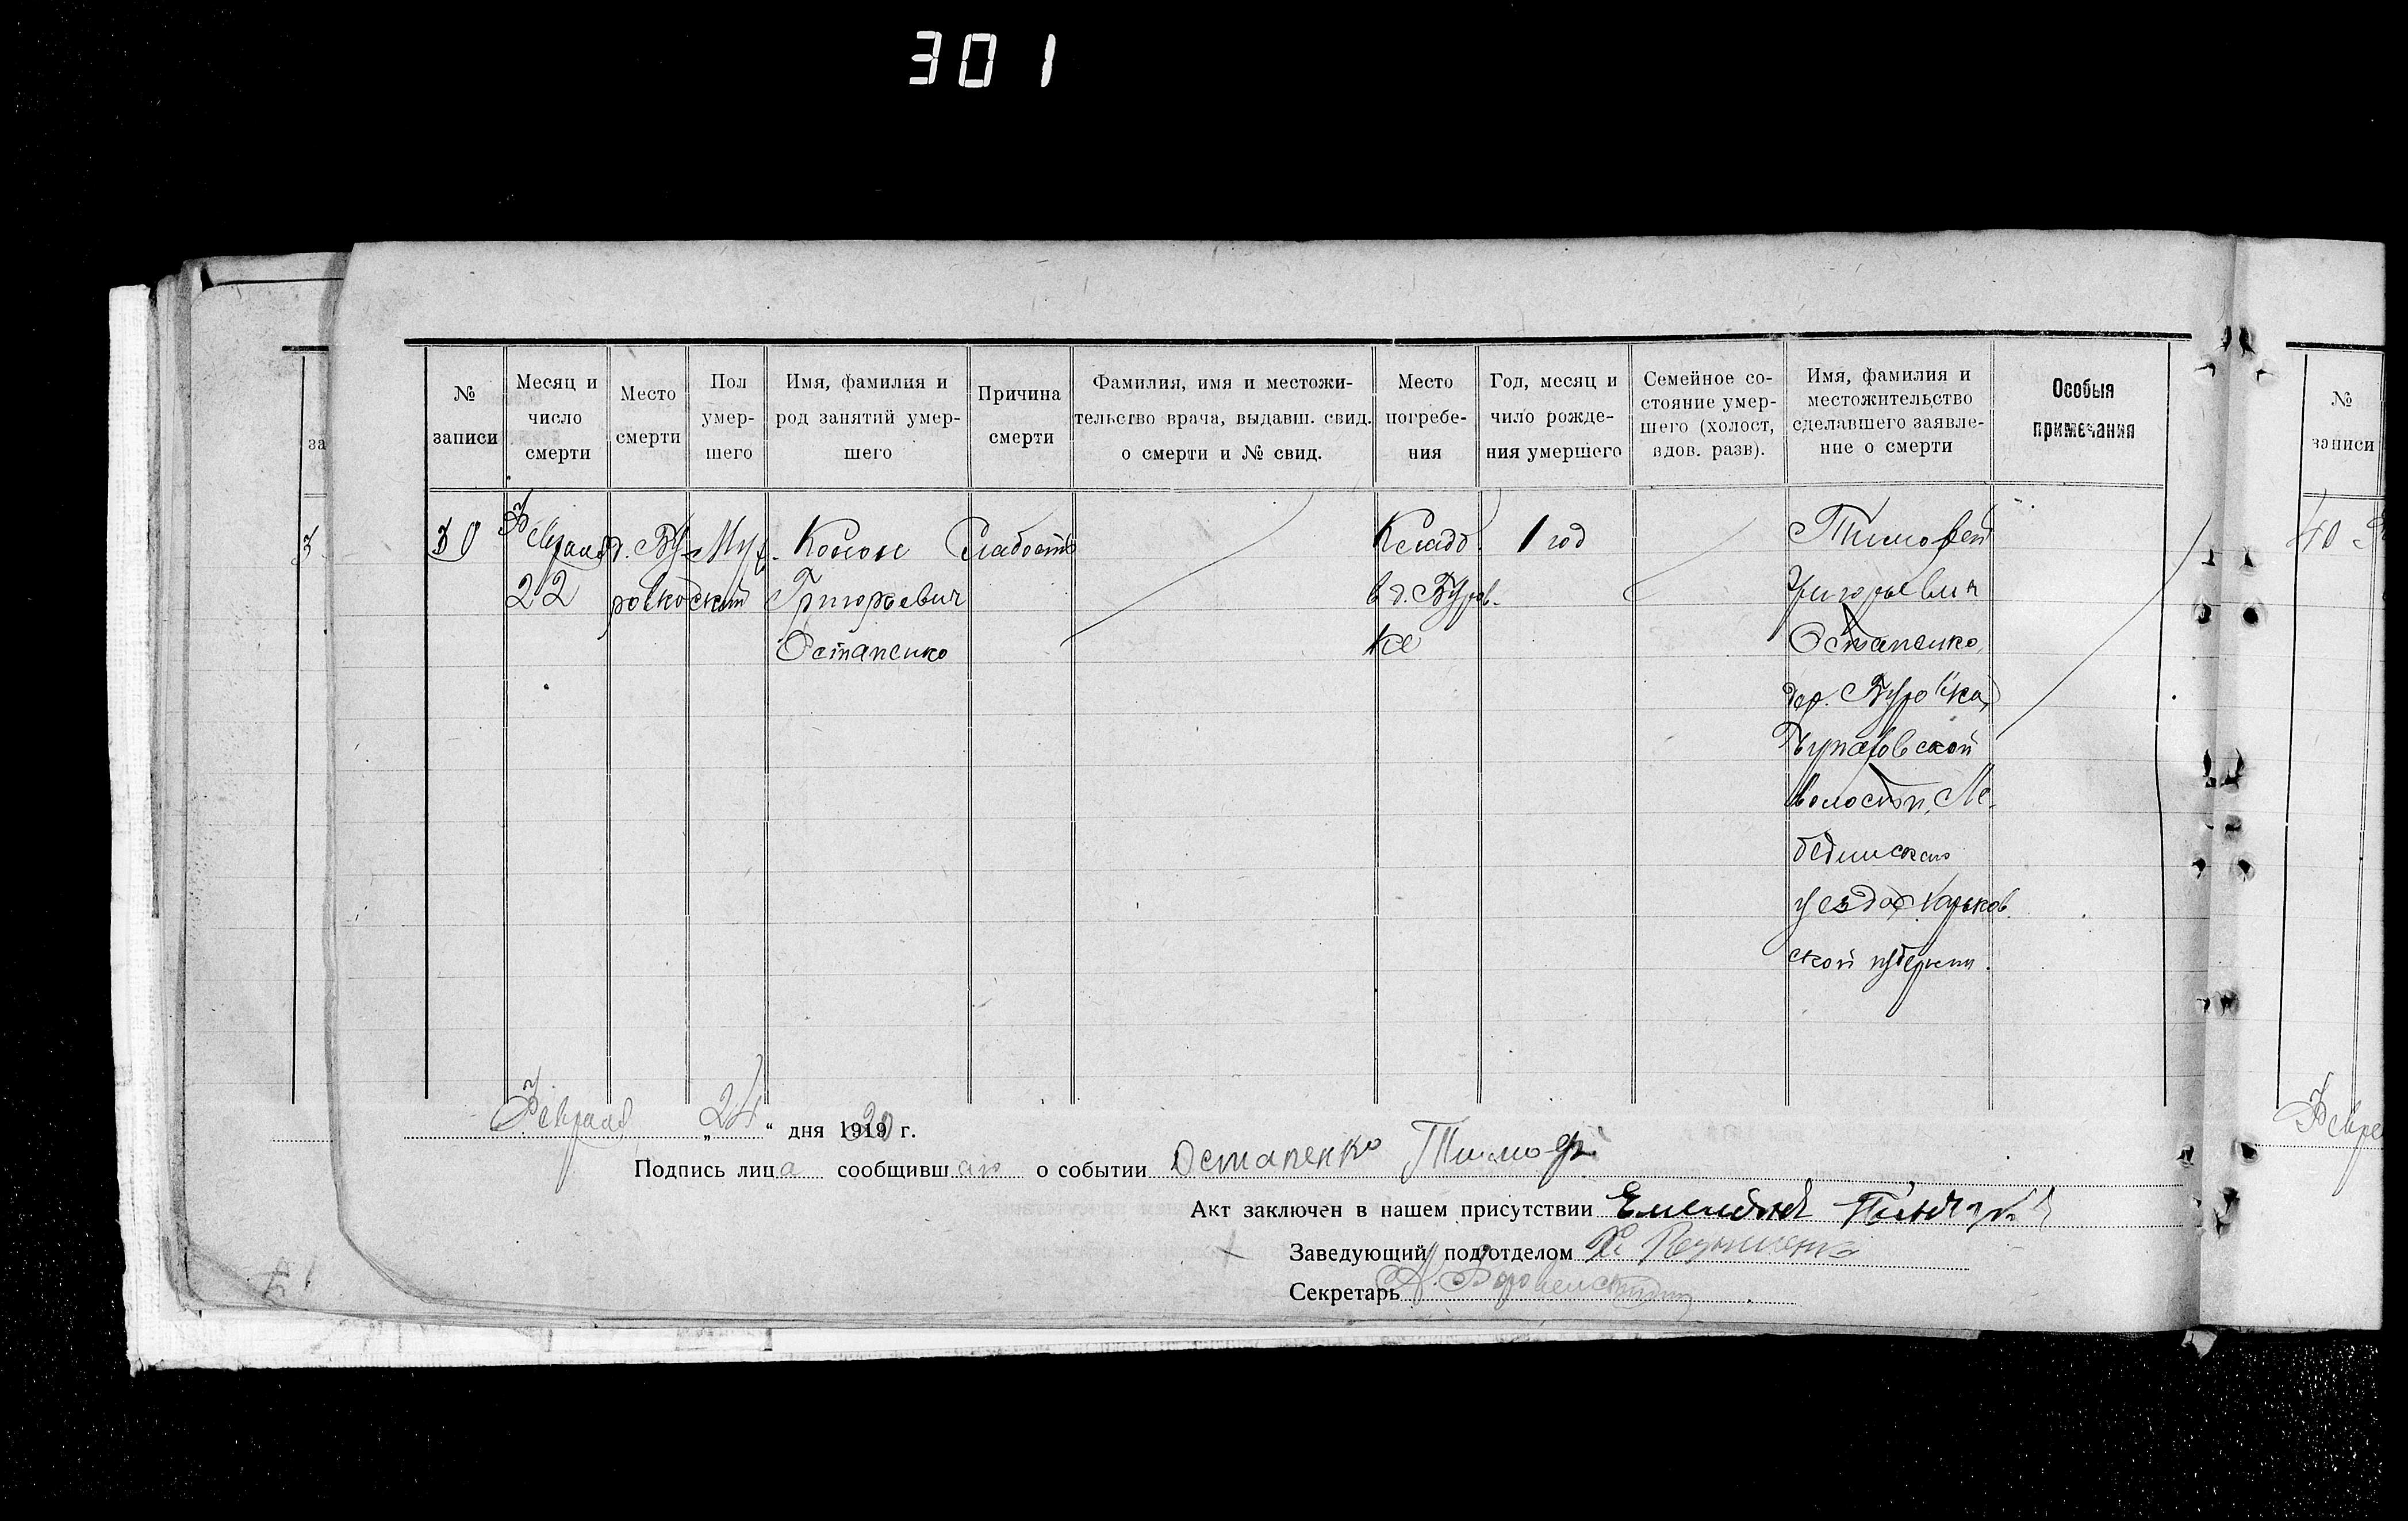 301
№ записи
Месяц и число смерти
Место смерти
Пол умершего
Имя, фамилия и род занятий умершего
Причина смерти
Фамилия, имя и местожительство врача, выдавш. свид. о смерти и № свид.
Место погребения
Год, месяц и чило рождения умершего
Семейное состояние умершего (холост, вдов. разв).
Имя, фамилия и местожительство сделавшего заявление о смерти
Особыя примечания
№
записи
за
30
Февраля
22
д. Бу-
ровка
Муж-
ской
Конон
Григорьевич
Остапенко
Слабость
Кладб.
в д. Буров-
ке
1 год
Тимофей
Григорьевич
Остапенко,
дер. Буровка,
волости, Ле-
бединского
уезда Харьков
ской губернии.
40
Февраля „24“ дня 1920 г.
Подпись лица сообщившаго о событии Остапенко Тимоф
Акт заключен в нашем присутствии
Заведующий подотделом
Секретарь